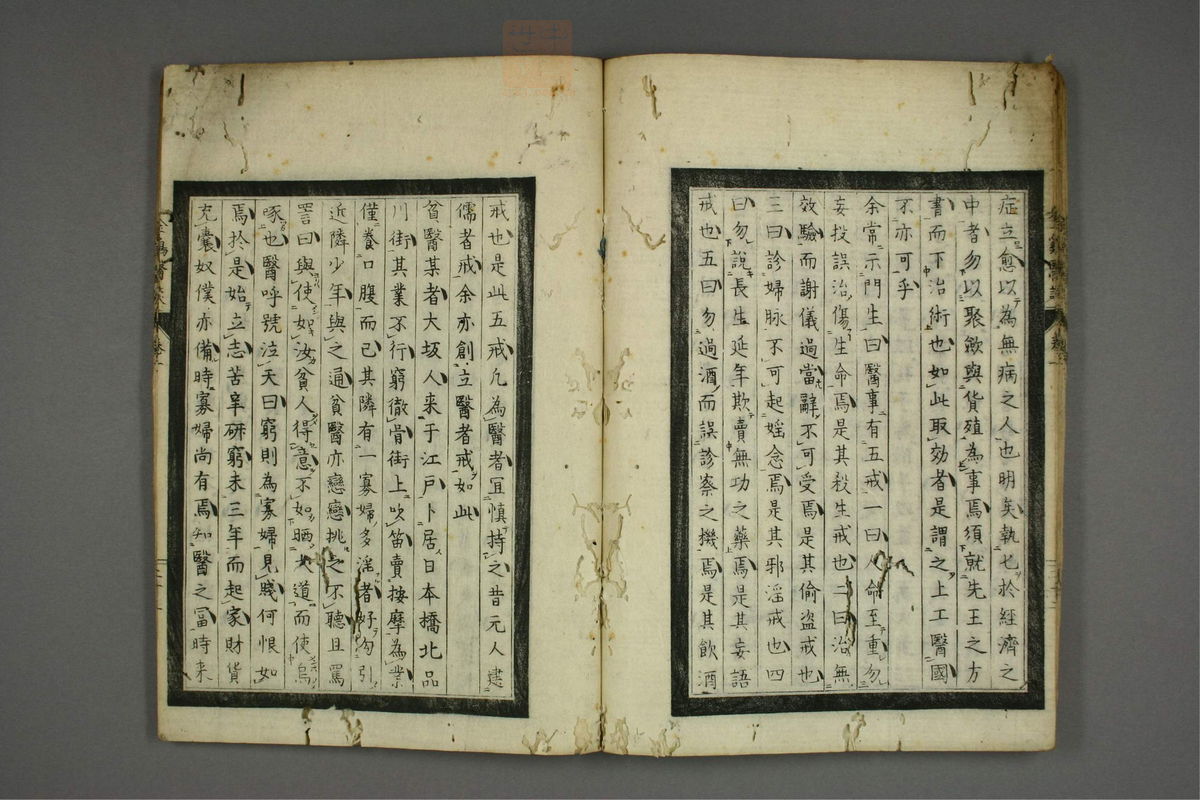 症立愈以為無病之人也明矣執匕於經濟之
中者勿以聚斂與貨殖為事焉須就先王之方
書而下治術也如此取効者是謂之上工醫國
不亦可乎
余常示門生曰醫事有五戒一曰人命至重勿
妄投誤治傷生命焉是其殺生戒也二曰治無
效驗而謝儀過當辭不可受焉是其偷盗戒也
三曰診婦脉不可起婬念焉是其邪淫戒也四
曰勿說長生延年欺賣無功之藥焉是其妄語
戒也五曰勿過酒而誤診察之機焉是其飲酒
戒也是此五戒凡為醫者冝慎持之昔元人建
儒者戒余亦創立醫者戒如此
貧醫某者大坂人来于江戸卜居日本橋北品
川街其業不行窮徹骨街上吹笛賣按摩為業
僅養口腹而已其隣有一寡婦多淫者好勾引
近隣少年與之通貧醫亦戀戀挑之不聽且罵
詈曰與使如汝貧人得意不如晒大道而使烏
啄也醫呼號泣天曰窮則為寡婦見賤何恨如
焉於是始立志苦辛硏窮未三年而起家財貨
充囊奴僕亦備時寡婦尚有焉知醫之冨時来